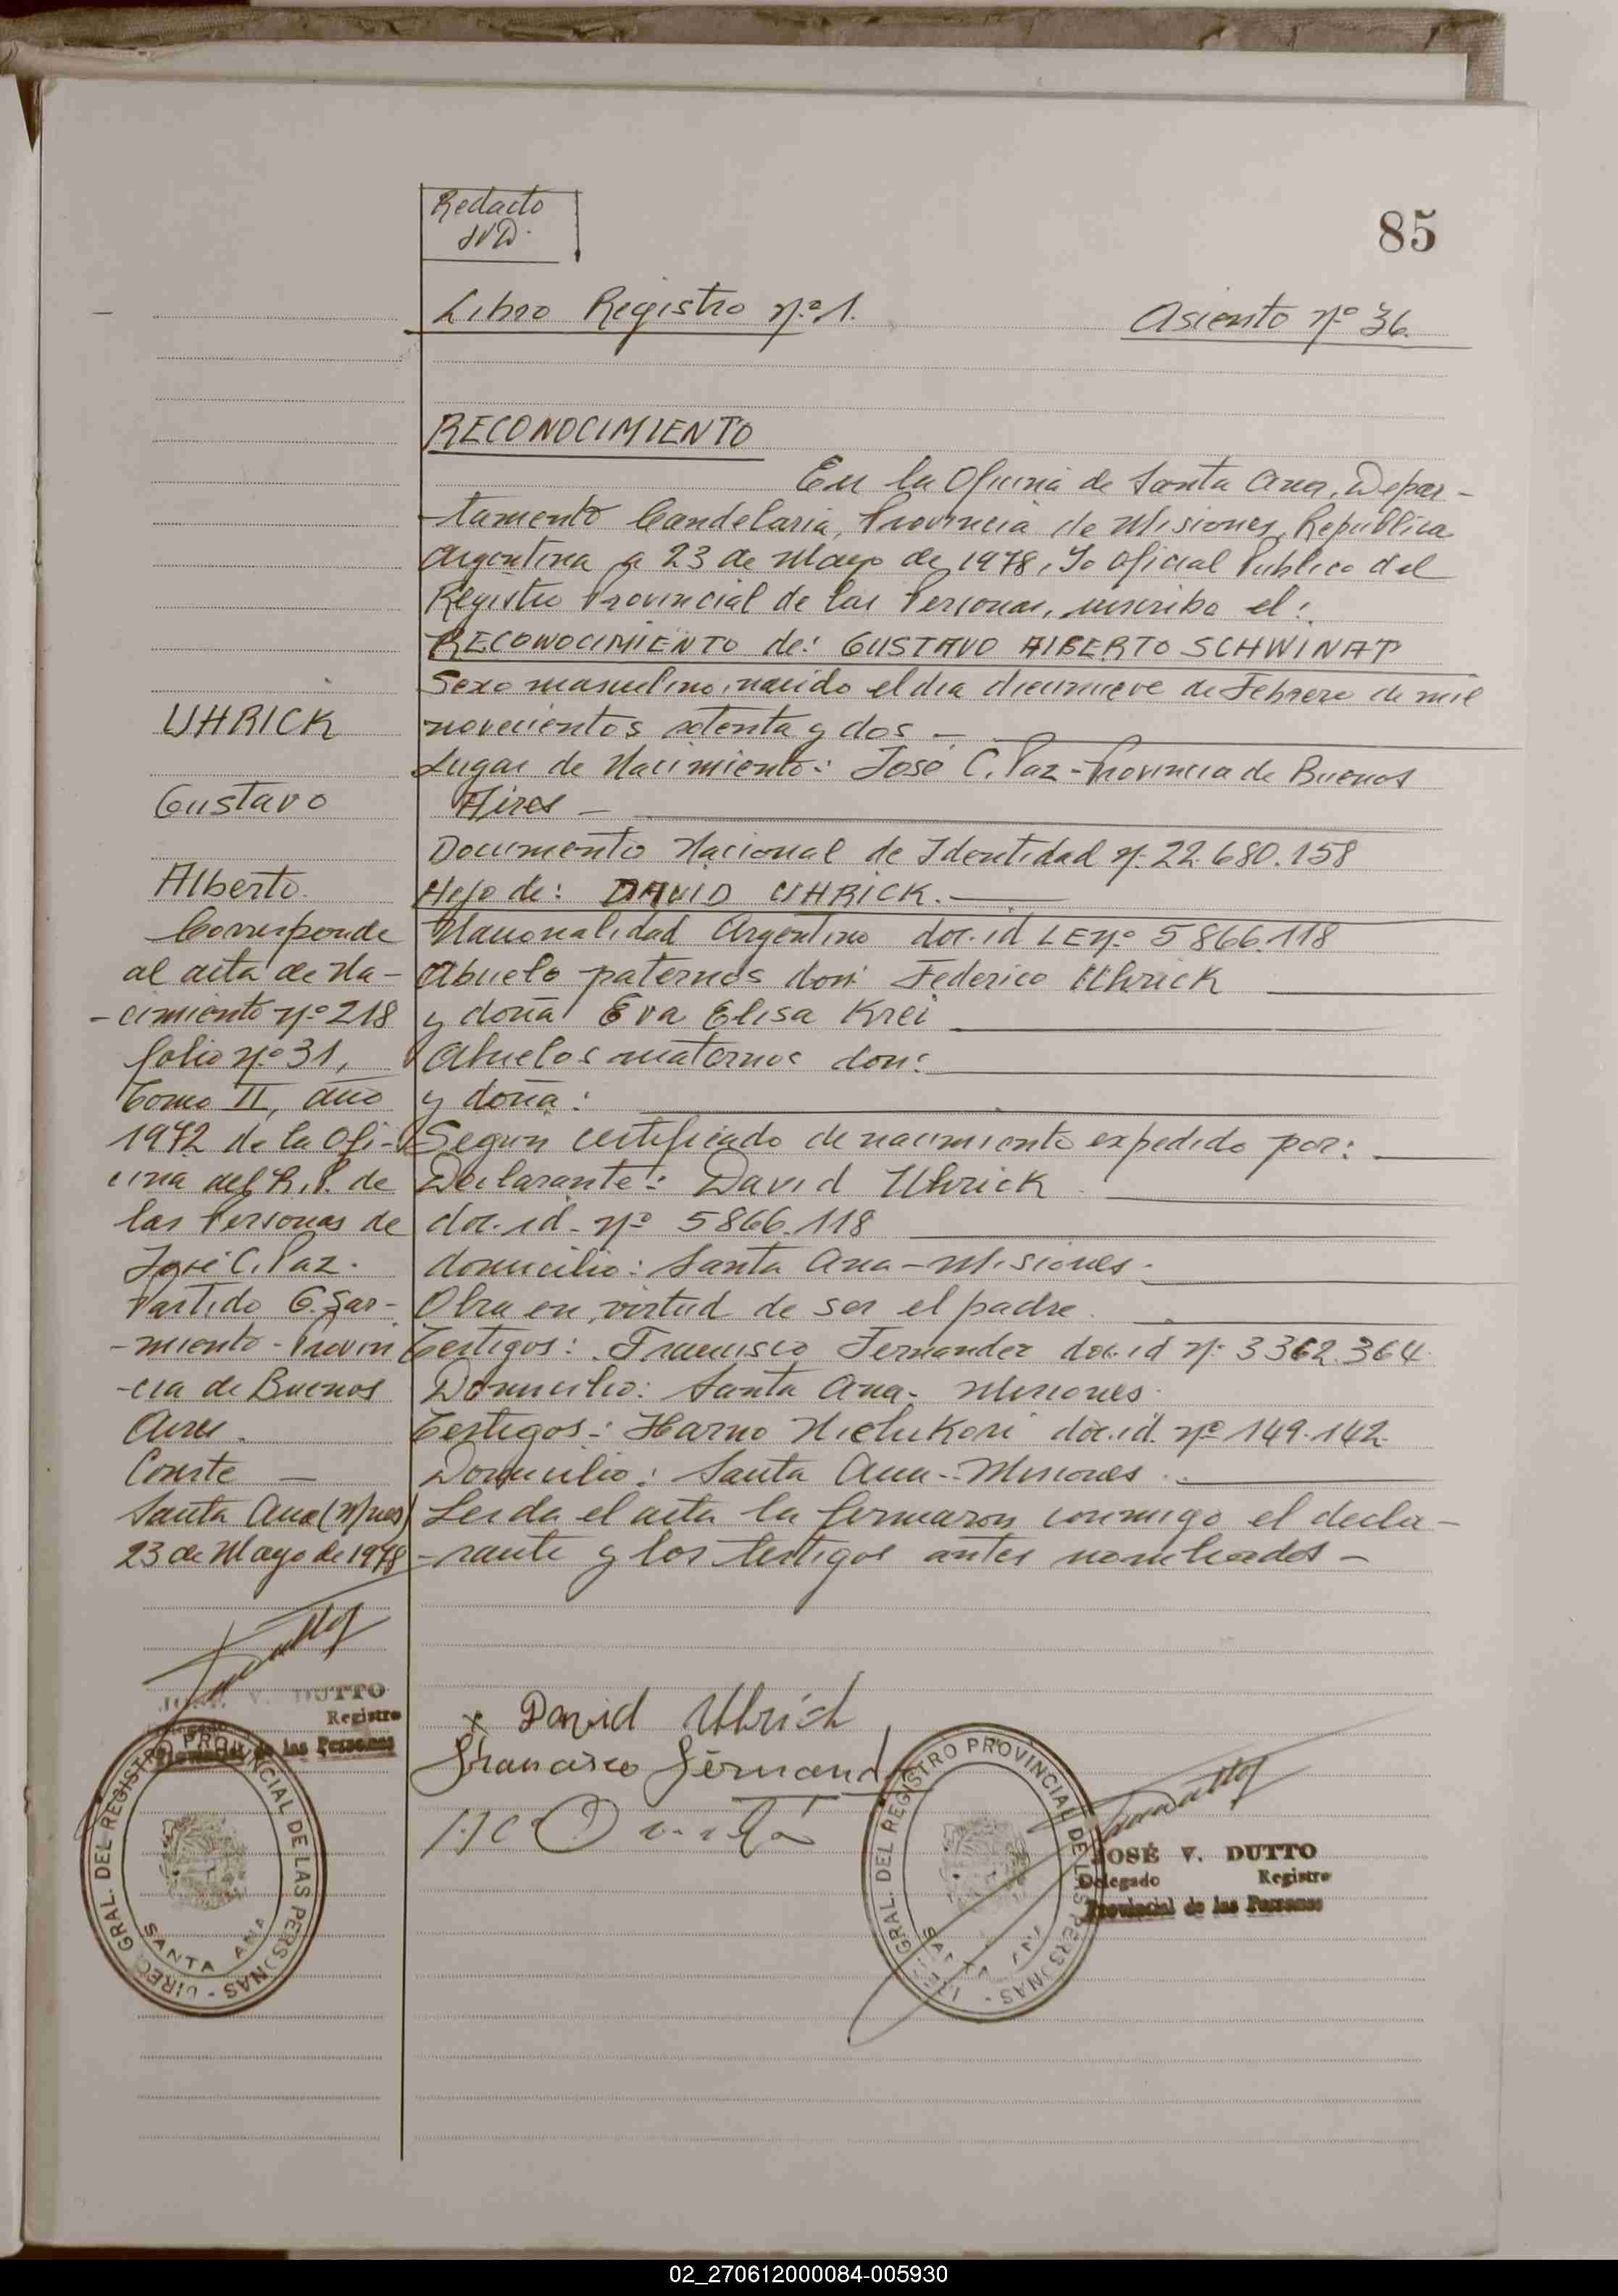 Redacto
JVD.
85
Libro Registro nº 1.
Asiento nº 36.
RECONOCIMIENTO
En la Oficina de Santa Ana, Depar-
tamento Candelaria, Provincia de Misiones, Republica
Argentina a 23 de Mayo de 1978, Yo Oficial Publico del
Registro Provincial de las Personas, inscribo el:
RECONOCIMIENTO de: GUSTAVO ALBERTO SCHWINAT
Sexo masculino, nacido el dia diecinueve de Febrero de mil
novecientos setenta y dos -
Lugar de Nacimiento: José C. Paz - Provincia de Buenos
Aires -
Documento Nacional de Identidad nº 22.680.158
Hijo de: DAVID UHRICK.
Nacionalidad Argentino doc. id LE nº 5866.118
Abuelo paternos don: Federico Uhrick
y doña Eva Elisa Krei
Abuelos maternos don:
y doña:
Segun certificado de nacimiento expedido por:
Declarante: David Uhrick
doc. id. nº 5866.118
domicilio: Santa Ana - Misiones.
Obra en virtud de ser el padre.
Testigos: Francisco Fernandez doc. id nº 3362.364
Domicilio: Santa Ana - Misiones.
Testigos: Harno doc. id. nº 149.142
Domicilio: Santa Ana - Misiones.
Leida el acta la firmaron conmigo el decla-
-rante y los testigos antes nombrados -
UHRICK
Gustavo
Alberto.
Corresponde
al acta de Na-
-cimiento nº 218
folio nº 31,
Tomo II, año
1972 de la Ofi-
cina del R. P. de
las Personas de
José C. Paz.
Partido G. Sar-
-miento - Provin
-cia de Buenos
Aires.
Conste -
Santa Ana (Mnes)
23 de Mayo de 1978
JOSÉ V. DUTTO
Registro
Provincial de las Personas
DIREC. GRAL. DEL REGISTRO PROVINCIAL DE LAS PERSONAS -
SANTA ANA
x David Uhrich
Francisco Fernand
DIREC. GRAL. DEL REGISTRO PROVINCIAL DE LAS PERSONAS -
SANTA ANA
JOSÉ V. DUTTO
Delegado Registro
Provincial de las Personas
02_270612000084-005930